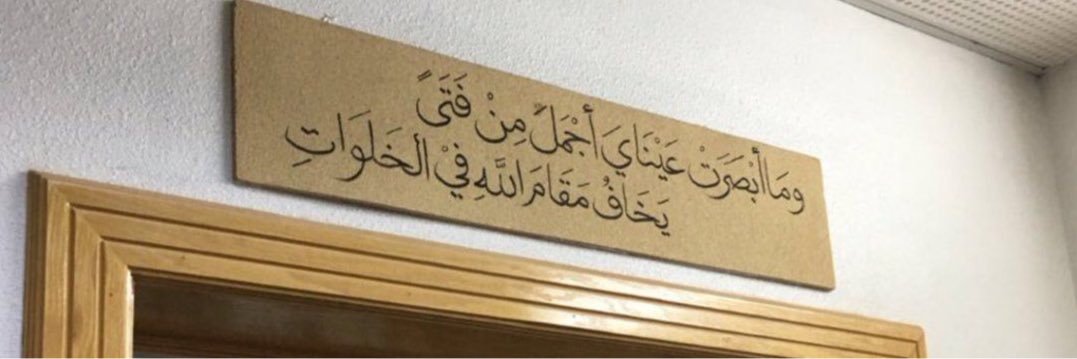 وَمَا أَبْصَرَتْ عَيْنَايَ أَجْمَلَ مِنْ فَتَىً
يَخَافُ مَقَامَ اللَّهِ فِيْ الْخَلَوَاتِ